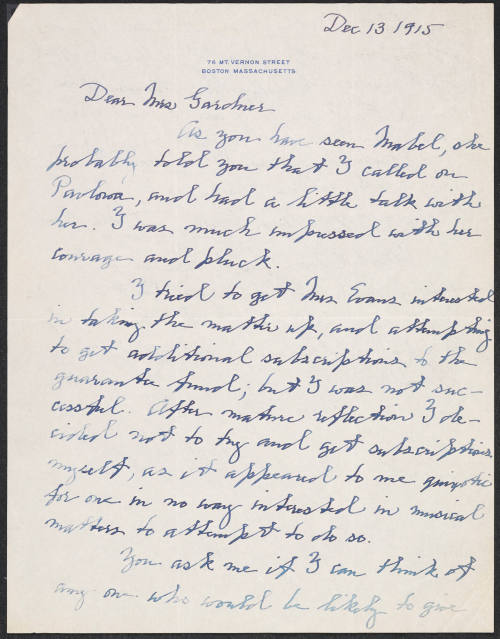 Dec 13 1915
76 MT. VERNON STREET
BOSTON MASSACHUSETTS
Dear Mrs Gardner
As you have seen Mabel, she
probably told you that I called on
Pavlowa, and had a little talk with
her. I was much impressed with her
courage and pluck.
I tried to get Mrs Evans interested
in taking the matter up, and attempting
to get additional subscriptions to the
guarantee fund; but I was not suc-
cessful. After mature reflection I de-
cided not to try and get subscriptions
myself, as it appeared to me quixotic
for one in no way interested in musical
matters to attempt to do so.
You ask me if I can think of
any one who would be likely to give